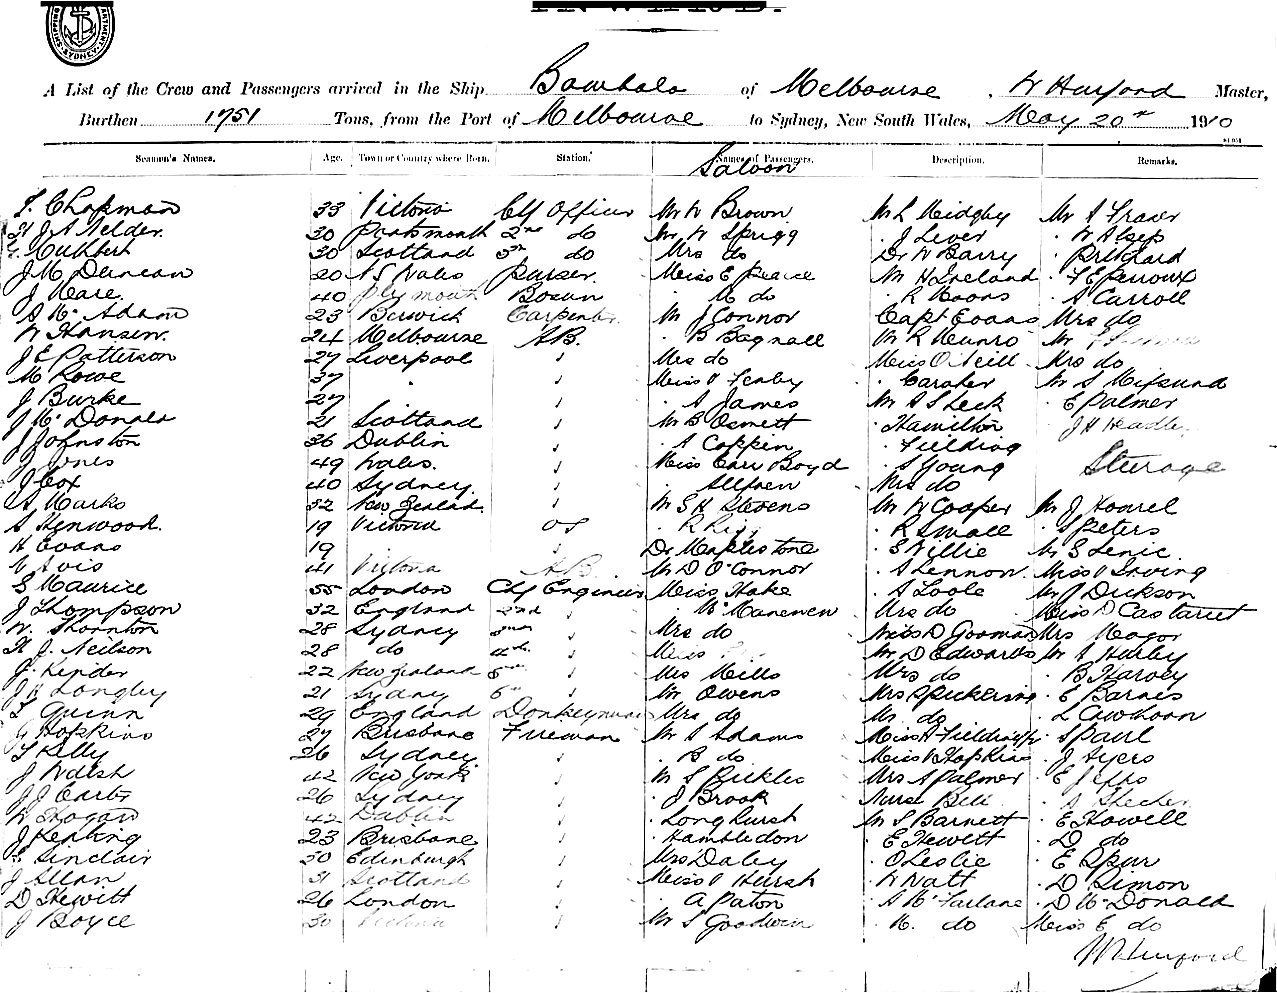 SHIPPING DEPARTMENT SYDNEY
INWARD.
A List of the Crew and Passengers arrived in the Ship Bombala of Melbourne, W Hurford Master,
Burthen 1751 Tons, from the Port of Melbourne to Sydney, New South Wales, May 20th 1910
Seamen's Names. Age. Town or Country where Born. Station. Names of Passengers. Description. Remarks.
Saloon
Chapman 33 Victoria Chf Officer Mr W Brown Mr L Midgley Mr A Fraser
H J A Nelder. 30 Portsmouth 2nd do Mr W Sprigg . J Lever . W Alsep
Cuthbert 30 Scotland 3rd do Mrs do Dr W Barry . Pritchard
J Mc Duncan 20 N S Wales Purser. Miss E Pearce Mr H Ireland . F E Perroux
J Hare. 40 Plymouth Bosun . M do . R Moons . A Carroll
A Mc Adam 23 Berwick Carpenter Mr J Connor Capt Evans Mrs do
W Hansen. 24 Melbourne AB. . B Bagnall Mr R Munro Mr
J E Patterson 27 Liverpool " Mrs do Miss O'Neill Mrs do
M Rowe 37 . " Miss V Fenby . Caraher Mr S Mifsund
J Burke 27 " . A James Mr A S Leck . E Palmer
J Mc Donald 21 Scotland " Mr B Osmett . Hamilton . J H Headle
J Johnston 36 Dublin " . A Coppin . Fielding
J Jones 49 Wales. " Miss Carr Boyd . S Young Steerage
J Cox 40 Sydney. " . Allfren Mrs do
A Marks 32 New Zealand. " Mr S H Stevens Mr W Cooper Mr J Honrel
A Henwood. 19 Victoria OS . R . R Small . S Peters
H Evans 19 " Dr Maplestone . S Willie Mr S Lenie
41 Victoria AB. Mr D O'Connor . A Lennon Miss V Irving
S Maurice 55 London Chf Engineer Miss Hake . A Toole Mr J Dickson
J Thompson 32 England 2nd " . McManemen Mrs do Miss D Castaret
W. Thornton 28 Sydney 3rd " Mrs do Miss D Gooman Mrs Magor
H J. Neilson 28 do 4th " Miss Mr D Edwards Mr A Hurley
J. Kinder 22 New Zealand 5th " Mrs Mills Mrs do . B Harvey
J H Longley 21 Sydney 6th " Mr Owens Mrs S Pickering . E Barnes
Quinn 29 England Donkeyman Mrs do Mr do . L Cawhoon
G Hopkins 27 Brisbane Fireman Mr A Adams Miss . S Paul
T Kelly 26 Sydney. " . B do Miss V Hopkins . J Ayers
J Walsh 42 New York " Mr S Bickles Mrs A Palmer . E Jelfs
J J Carter 26 Sydney " . J Brook Nurse Bell
W Hogan 42 Dublin " . Longhurst Mr S Barnett . E Howell
J Keating 23 Brisbane " . Hambledon . E Hewitt . D do
Sinclair 30 Edinburgh " Mrs Daley . O Leslie . E Spur
J Allan 31 Scotland " Miss V Hursh . W Watt . D Simon
D Hewitt 26 London " . A Paton . A McFarlane . D McDonald
J Boyce 30 Victoria " Mr S Goodwin . M. do Miss E do
W Hurford